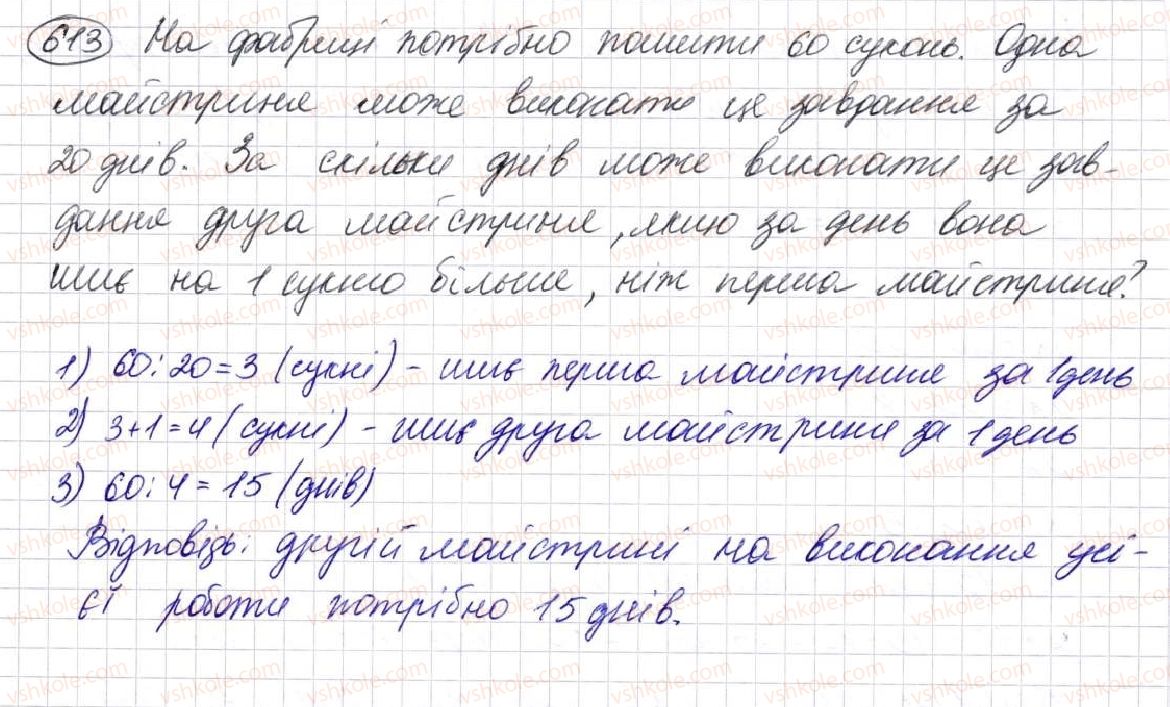 613 На фабриці потрібно пошити 60 суконь. Одна
майстриня може виконати це завдання за
20 днів. За скільки днів може виконати це зав-
дання друга майстриня, якщо за день вона
шиє на 1 сукню більше, ніж перша майстриня?
1) 60:20=3 (сукні) - шиє перша майстриня за 1 день
2) 3+1=4 (сукні) - шиє друга майстриня за 1 день
3) 60:4=15 (днів)
Відповідь: другій майстрині на виконання усі-
єї роботи потрібно 15 днів.